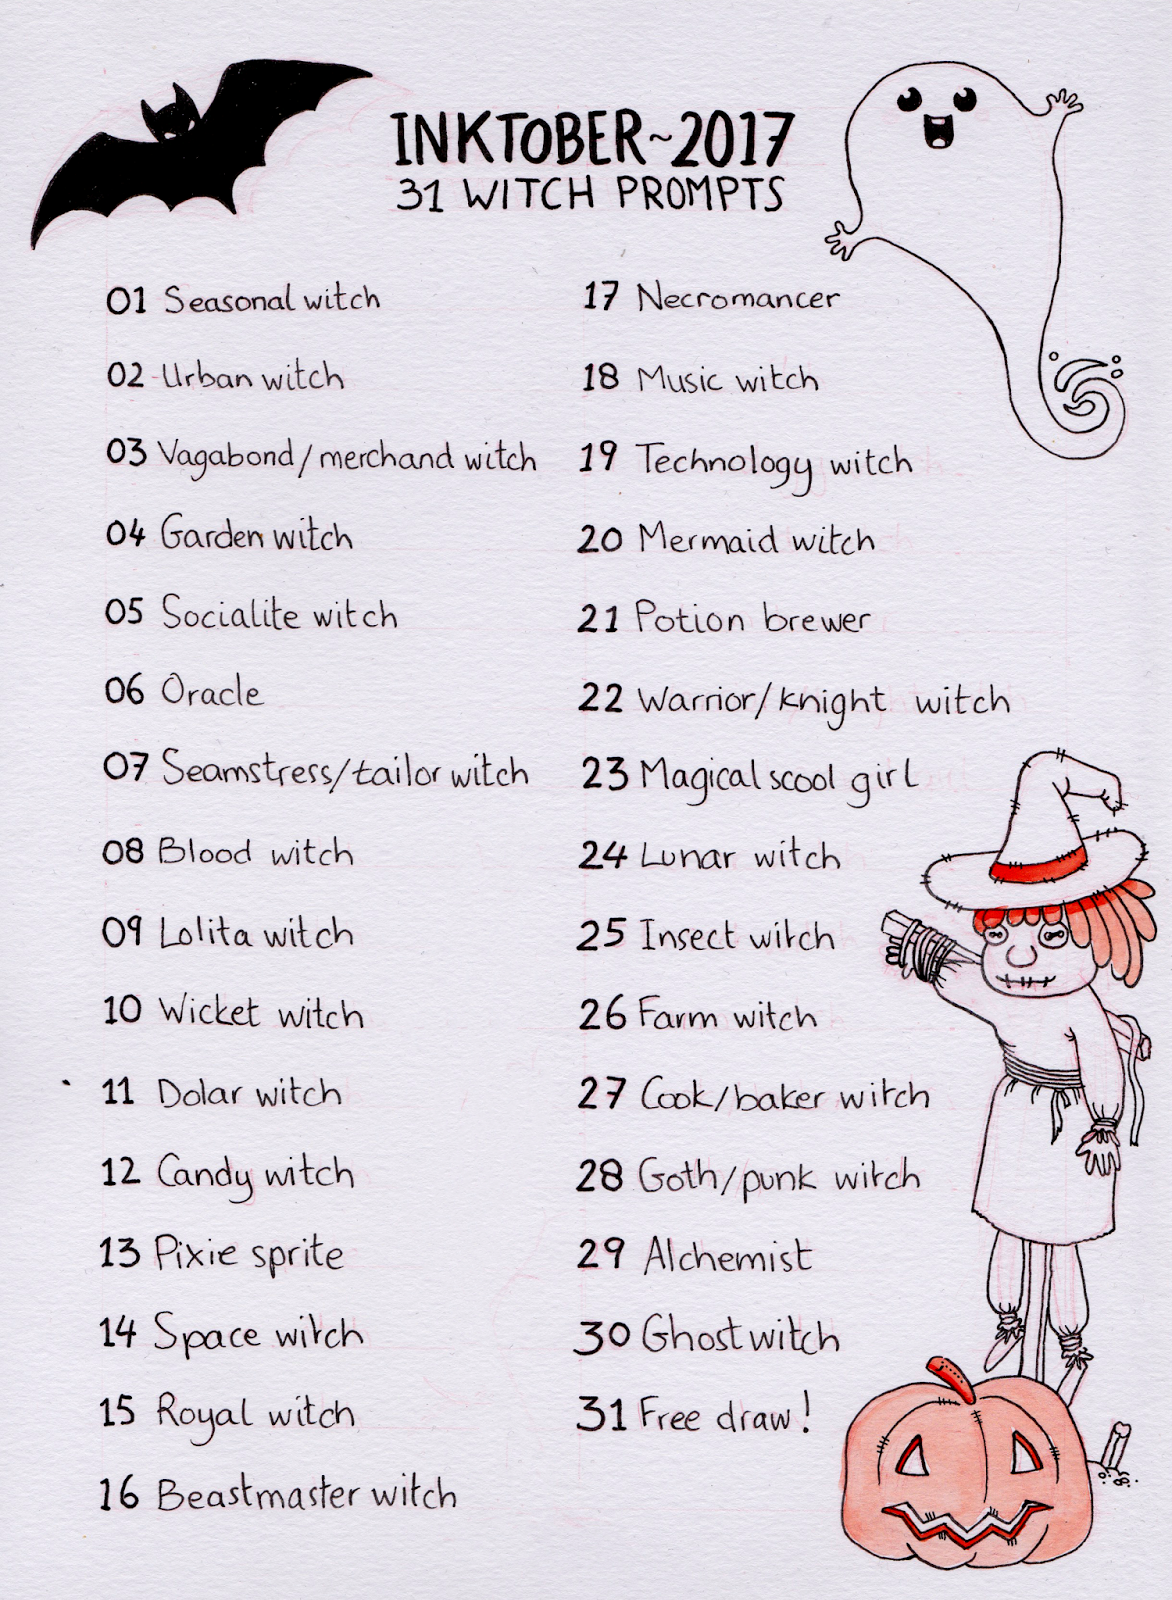 INKTOBER~2017
31 WITCH PROMPTS
01 Seasonal witch
02 Urban witch
03 Vagabond/merchand witch
04 Garden witch
05 Socialite witch
06 Oracle
07 Seamstress/tailor witch
08 Blood witch
09 Lolita witch
10 Wicket witch
11 Dolar witch
12 Candy witch
13 Pixie sprite
14 Space witch
15 Royal witch
16 Beastmaster witch
17 Necromancer
18 Music witch
19 Technology witch
20 Mermaid witch
21 Potion brewer
22 Warrior/knight witch
23 Magical scool girl
24 Lunar witch
25 Insect witch
26 Farm witch
27 Cook/baker witch
28 Goth/punk witch
29 Alchemist
30 Ghost witch
31 Free draw!